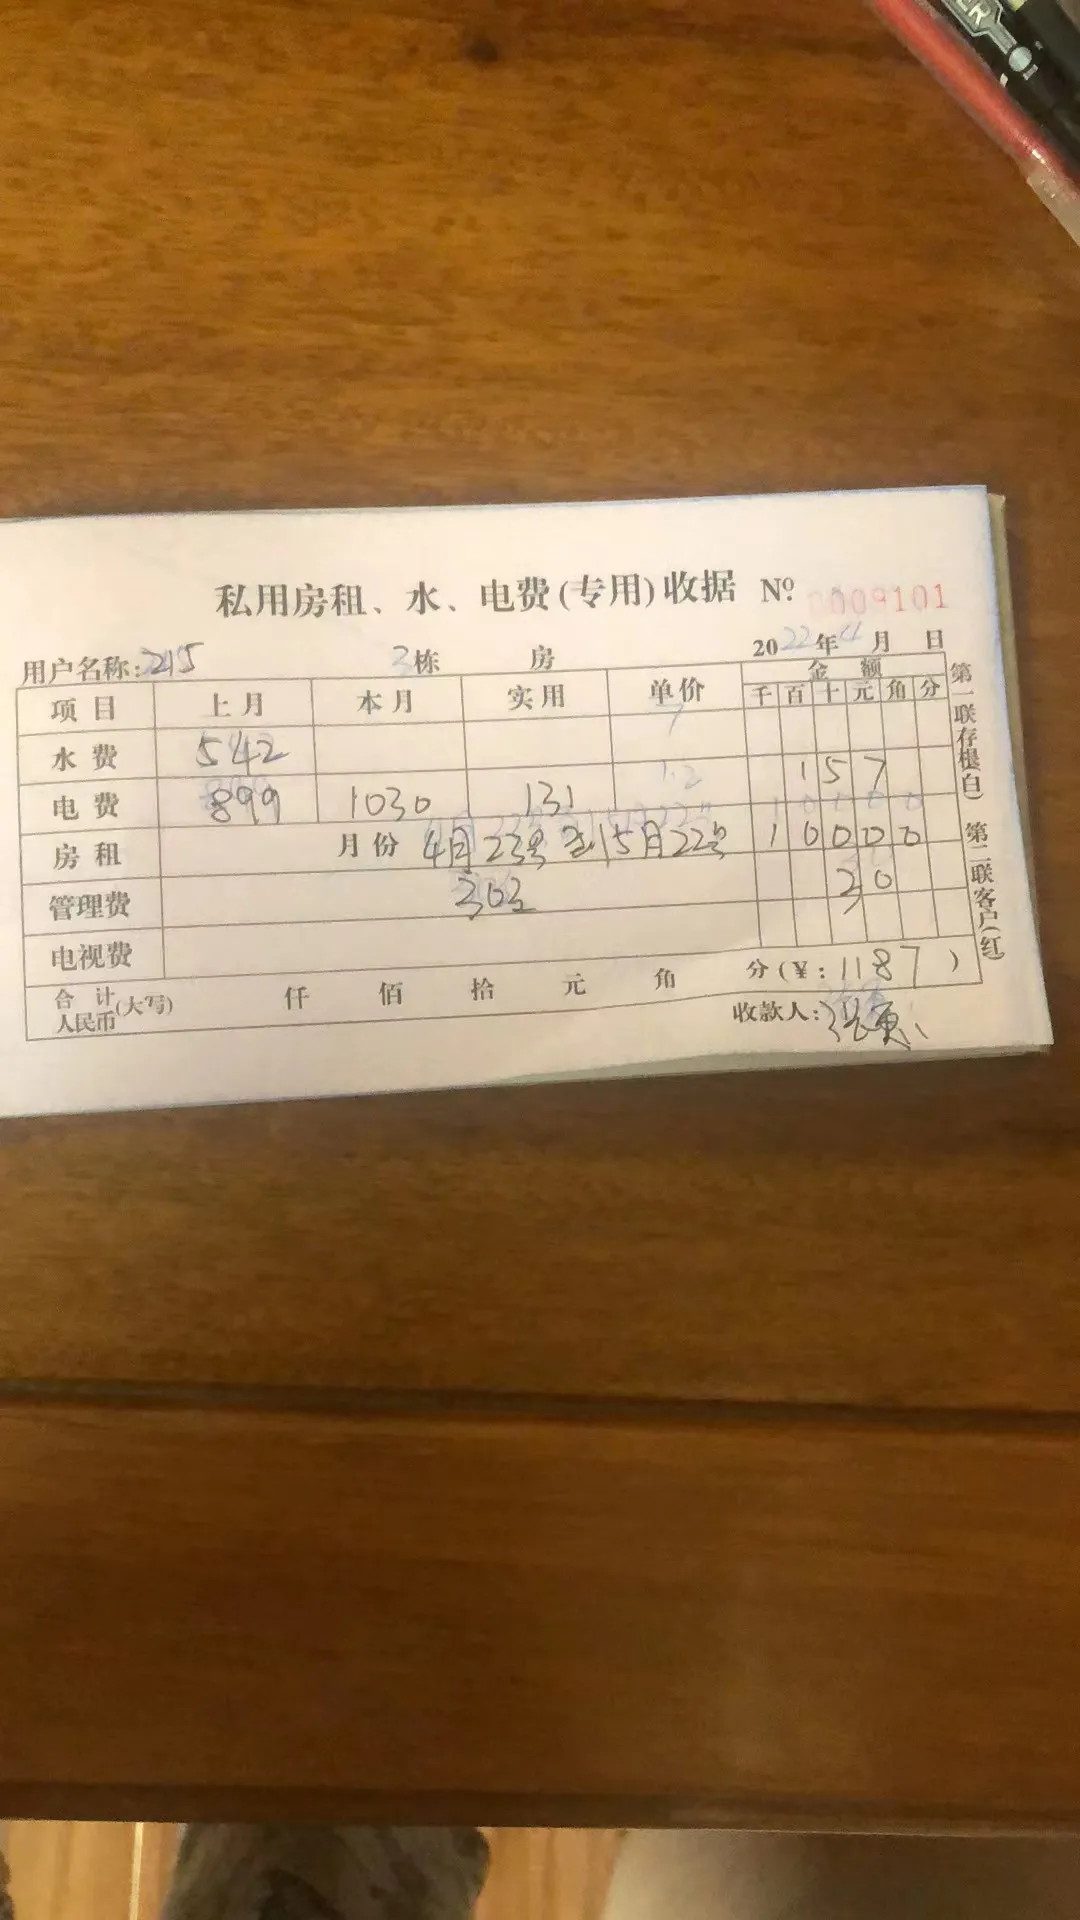 私用房租、水、电费(专用)收据 Nº 0009101
用户名称:215 3栋 房 2022年4月 日
项目 上月 本月 实用 单价 金额
千 百 十 元 角 分
水费 542 7
电费 899 1030 131 1.2 1 5 7
房租 月份 4月23号至5月22号 1 0 0 0 0 0
管理费 30
电视费
合计人民币(大写) 仟 佰 拾 元 角 分(¥:1187)
收款人:
第一联存根(白) 第二联客户(红)